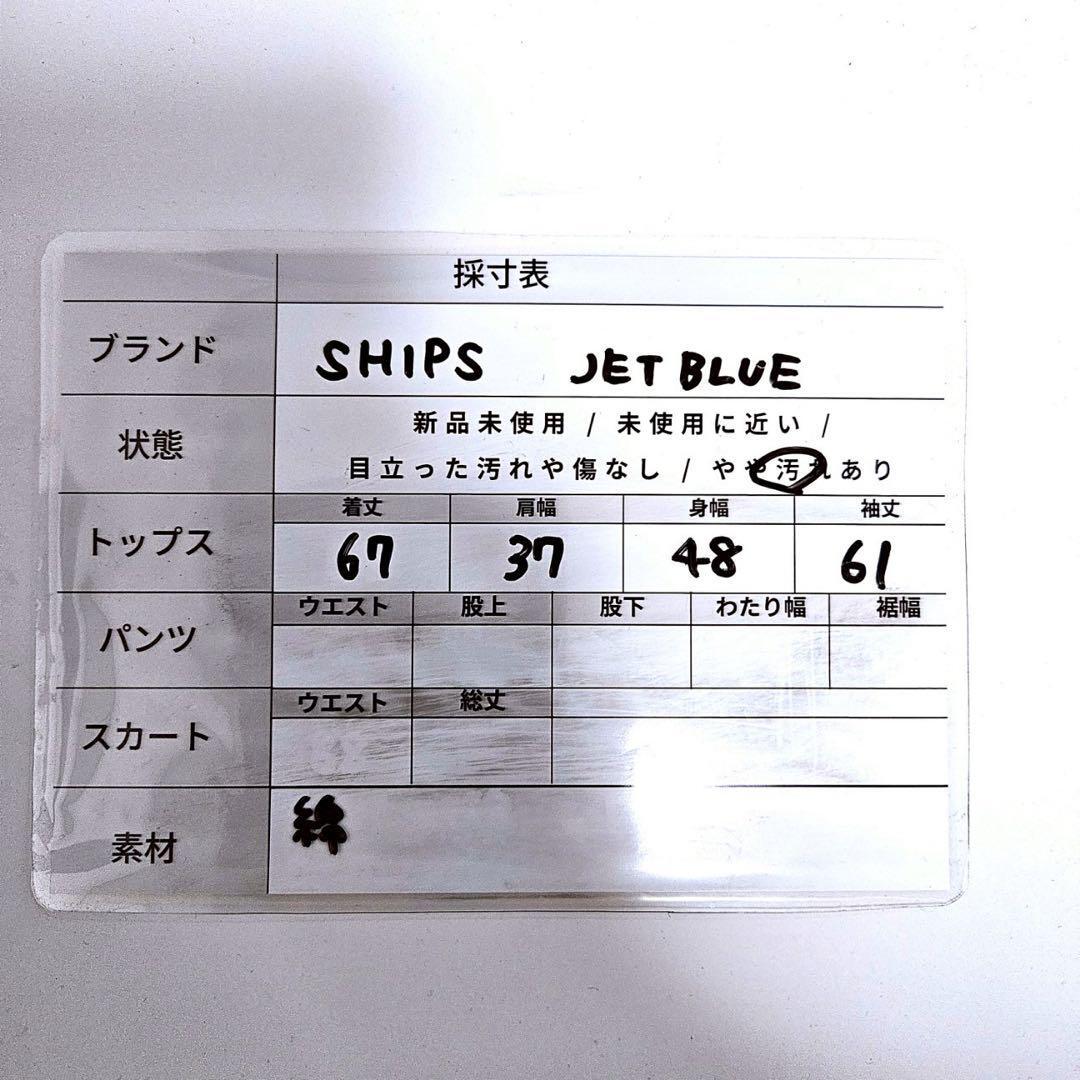 採寸表
ブランド SHIPS JET BLUE
状態 新品未使用 / 未使用に近い /
目立った汚れや傷なし / やや汚れあり
トップス 着丈 肩幅 身幅 袖丈
67 37 48 61
パンツ ウエスト 股上 股下 わたり幅 裾幅
スカート ウエスト 総丈
素材 綿